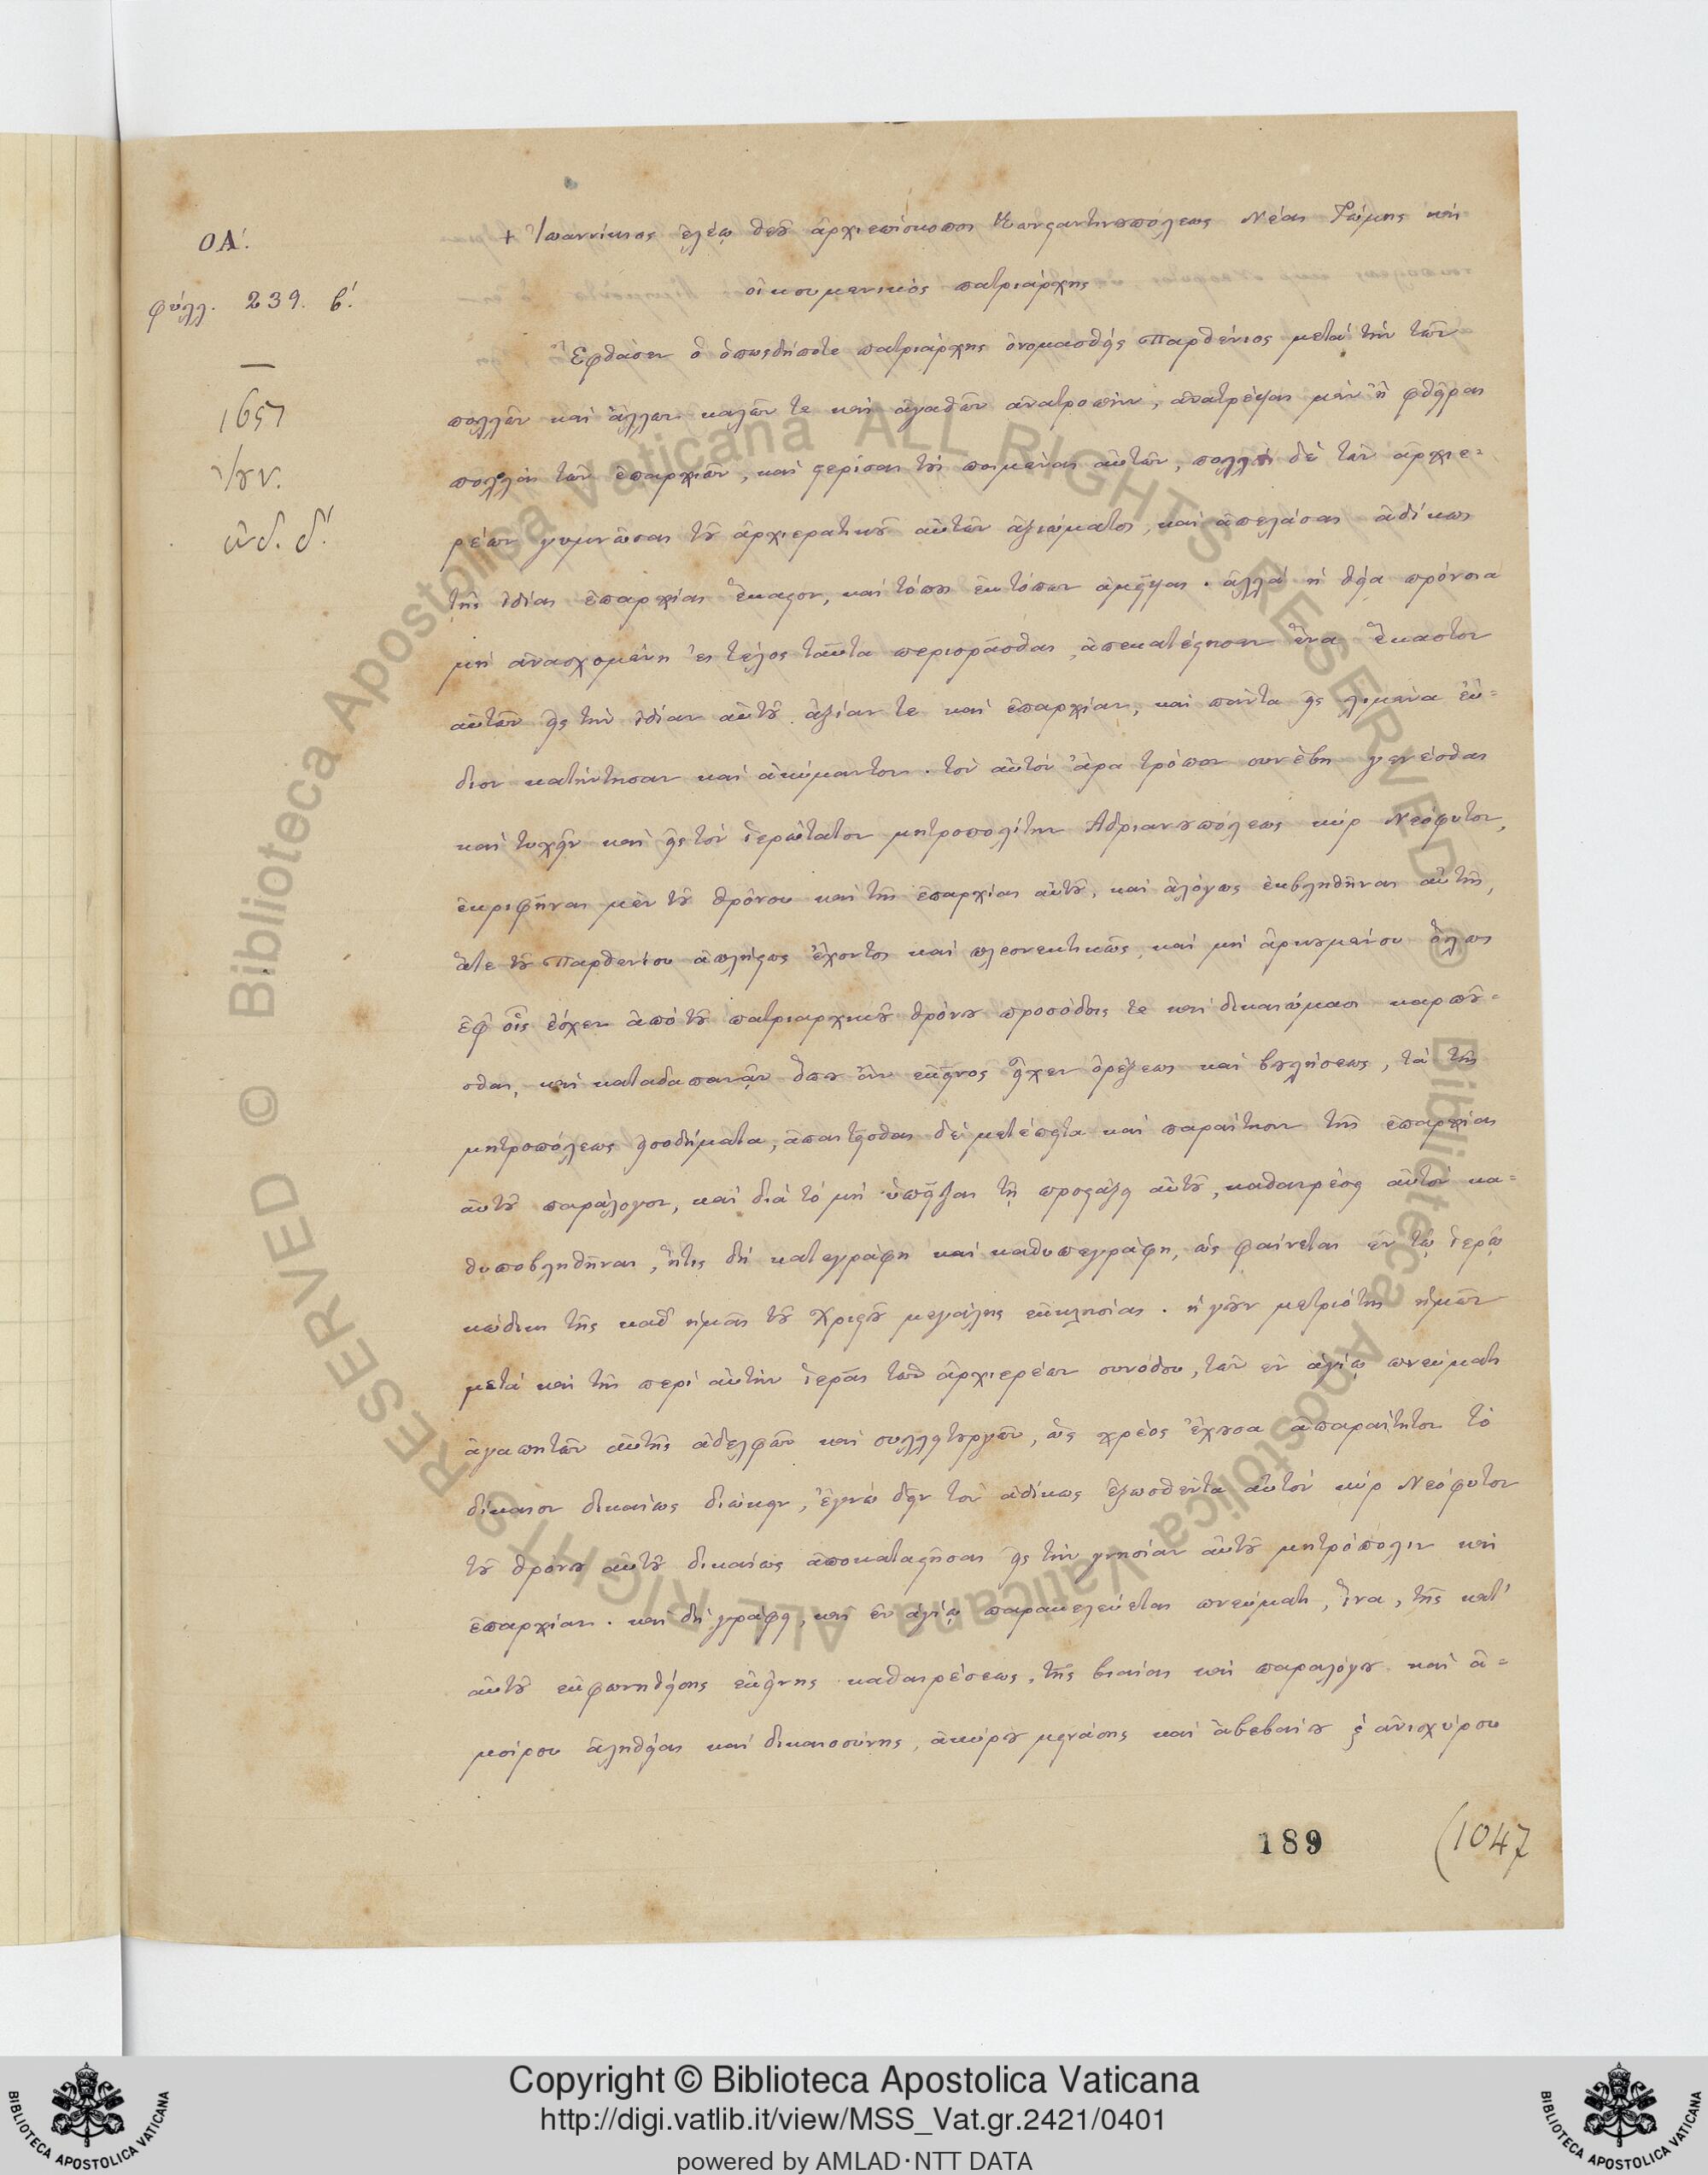 ΟΑ΄.
φύλλ. 239. β΄.
1651
ἰουν.
ἰνδ. δ΄.
+ Ἰωαννίκιος ἐλέῳ θεοῦ ἀρχιεπίσκοπος Κωνσταντινουπόλεως Νέας Ῥώμης καὶ
οἰκουμενικὸς πατριάρχης
Ἔφθασεν ὁ ὁπωςδήποτε πατριάρχης ὀνομασθεὶς Παρθένιος μετὰ τὴν τῶν
πολλῶν καὶ ἄλλων καλῶν τε καὶ ἀγαθῶν ἀνατροπὴν, ἀνατρέψαι μὲν ἢ φθεῖραι
πολλὰς τῶν ἐπαρχιῶν, καὶ στερῖσαι τοὺς ποιμένας αὐτῶν, πολλοὺς δὲ τῶν ἀρχιε=
ρέων γυμνῶσαι τοῦ ἀρχιερατικοῦ αὐτῶν ἀξιώματος, καὶ ἀπελάσαι ἀδίκως
τῆς ἰδίας ἐπαρχίας ἕκαστον, καὶ τόπους ἐκ τόπων ἀμεῖψαι. ἀλλὰ ἡ θεία πρόνοια
μὴ ἀνασχομένη ἐς τέλος ταῦτα περιορᾶσθαι, ἀπεκατέστησεν ἕνα ἕκαστον
αὐτῶν εἰς τὴν ἰδίαν αὐτοῦ ἀξίαν τε καὶ ἐπαρχίαν, καὶ πάντα εἰς λιμένα εὔ=
διον κατήντησαν καὶ ἀκύμαντον. τὸν αὐτὸν ἄρα τρόπον συνέβη γενέσθαι
καὶ τυχεῖν καὶ εἰς τὸν ἱερώτατον μητροπολίτην Ἀδριανουπόλεως κὺρ Νεόφυτον,
ἐκριφῆναι μὲν τοῦ θρόνου καὶ τῆς ἐπαρχίας αὐτοῦ, καὶ ἀλόγως ἐκβληθῆναι αὐτῆς,
ἅτε τοῦ Παρθενίου ἀπλήστως ἔχοντος καὶ πλεονεκτικῶς, καὶ μὴ ἀρκουμένου ὅλως
ἐφ᾽ οἷς εἶχεν ἀπὸ τοῦ πατριαρχικοῦ θρόνου προσόδοις τε καὶ δικαιώμασι καρποῦ=
σθαι, καὶ καταδαπανᾷν ὅπου ἂν ἐκεῖνος εἶχεν ὀρέξεως καὶ βουλήσεως, τὰ τῆς
μητροπόλεως εἰσοδήματα, ἀπαιτεῖσθαι δὲ μετέπειτα καὶ παραίτησιν τῆς ἐπαρχίας
αὐτοῦ παράλογον, καὶ διὰ τὸ μὴ ὑπεῖξαι τῇ προστάξει αὐτοῦ, καθαιρέσει αὐτὸν κα=
θυποβληθῆναι, ἥτις δὴ κατεγράφη καὶ καθυπεγράφη, ὡς φαίνεται ἐν τῷ ἱερῷ
κώδικι τῆς καθ᾽ ἡμᾶς τοῦ Χριστοῦ μεγάλης ἐκκλησίας. ἡ γοῦν μετριότης ἡμῶν
μετὰ καὶ τῆς περὶ αὐτὴν ἱερᾶς τῶν ἀρχιερέων συνόδου, τῶν ἐν ἁγίῳ πνεύματι
ἀγαπητῶν αὐτῆς ἀδελφῶν καὶ συλλειτουργῶν, ὡς χρέος ἔχουσα ἀπαραίτητον τὸ
δίκαιον δικαίως διώκειν, ἔγνω δεῖν τὸν ἀδίκως ἐξωσθέντα αὐτὸν κὺρ Νεόφυτον
τοῦ θρόνου αὐτοῦ δικαίως ἀποκαταστῆσαι εἰς τὴν γνησίαν αὐτοῦ μητρόπολιν καὶ
ἐπαρχίαν. καὶ δὴ γράφει, καὶ ἐν ἁγίῳ παρακελεύεται πνεύματι, ἵνα, τῆς κατ᾽
αὐτοῦ ἐκφωνηθείσης ἐκείνης καθαιρέσεως, τῆς βιαίας καὶ παραλόγου καὶ ἀ=
μοίρου ἀληθείας καὶ δικαιοσύνης, ἀκύρου μεινάσης καὶ ἀβεβαίου ϗ ἀνισχύρου
189
(1047
Biblioteca Apostolica Vaticana ALL RIGHTS RESERVED ©
Biblioteca Apostolica Vaticana ALL RIGHTS RESERVED ©
BIBLIOTECA APOSTOLICA VATICANA
Copyright © Biblioteca Apostolica Vaticana
http://digi.vatlib.it/view/MSS_Vat.gr.2421/0401
powered by AMLAD·NTT DATA
BIBLIOTECA APOSTOLICA VATICANA